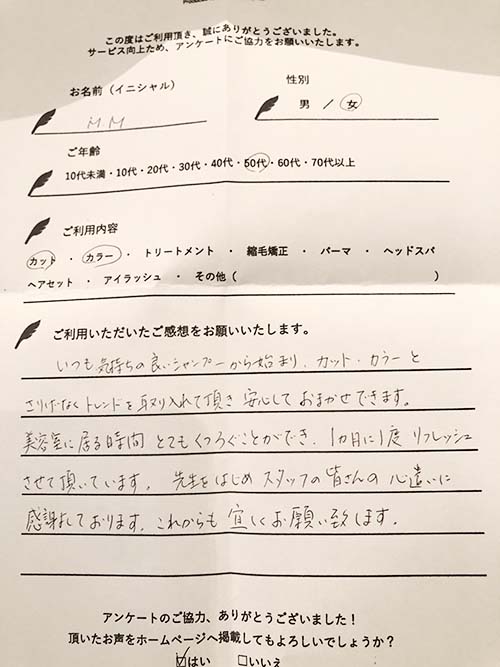 この度はご利用頂き、誠にありがとうございました。
サービス向上ため、アンケートにご協力をお願いいたします。
お名前（イニシャル）
M.M
性別
男 ／ 女
ご年齢
10代未満・10代・20代・30代・40代・50代・60代・70代以上
ご利用内容
カット ・ カラー ・ トリートメント ・ 縮毛矯正 ・ パーマ ・ ヘッドスパ
ヘアセット ・ アイラッシュ ・ その他（ ）
ご利用いただいたご感想をお願いいたします。
いつも気持ちの良いシャンプーから始まり、カット・カラーと
さりげなくトレンドを取り入れて頂き 安心しておまかせできます。
美容室に居る時間 とてもくつろぐことができ、1カ月に1度 リフレッシュ
させて頂いています。先生をはじめ スタッフの皆さんの心遣いに
感謝しております。これからも 宜しくお願い致します。
アンケートのご協力、ありがとうございました！
頂いたお声をホームページへ掲載してもよろしいでしょうか？
☑はい □いいえ